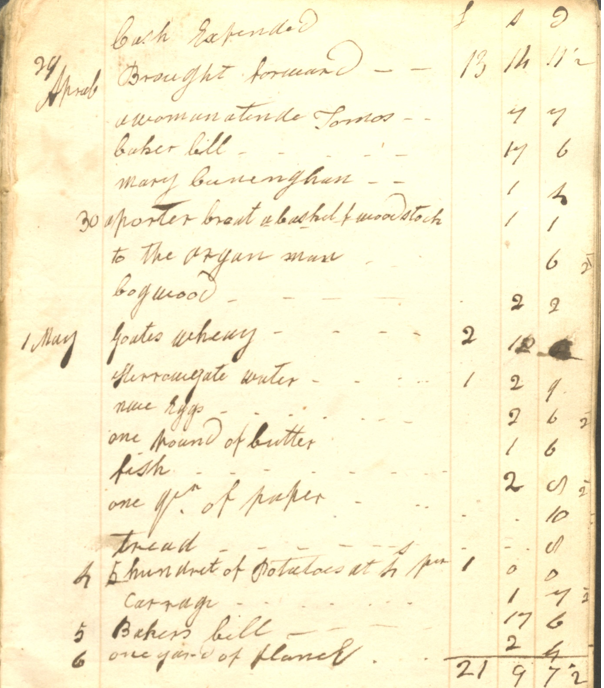 Cash Expended £ s d
29 Aprab Brought forward - - 13 14 11 2
a woman atende Tomos - - 7 7
baker bill - - - 17 6
mary Cunenghan - - 1 4
30 a porter broat a basket f woodstock 1 1
to the organ man 6
bogwood - - - - 2 2
1 May goates wheay - - - - 2
Harrowgate water - - - 1 2 9
nue Eggs - - - - 2 6 2
one Pound of butter 1 6
fish - - - - - 2 8 2
one qr of paper - - - 10
tread - - - - - 8
4 5 hundret of Potatoes at 4s per 1 0 0
Carrage - - - - 1 7 2
5 Bakers bill - - - 17 6
6 one yard of flanel - 2 4
21 9 7 2